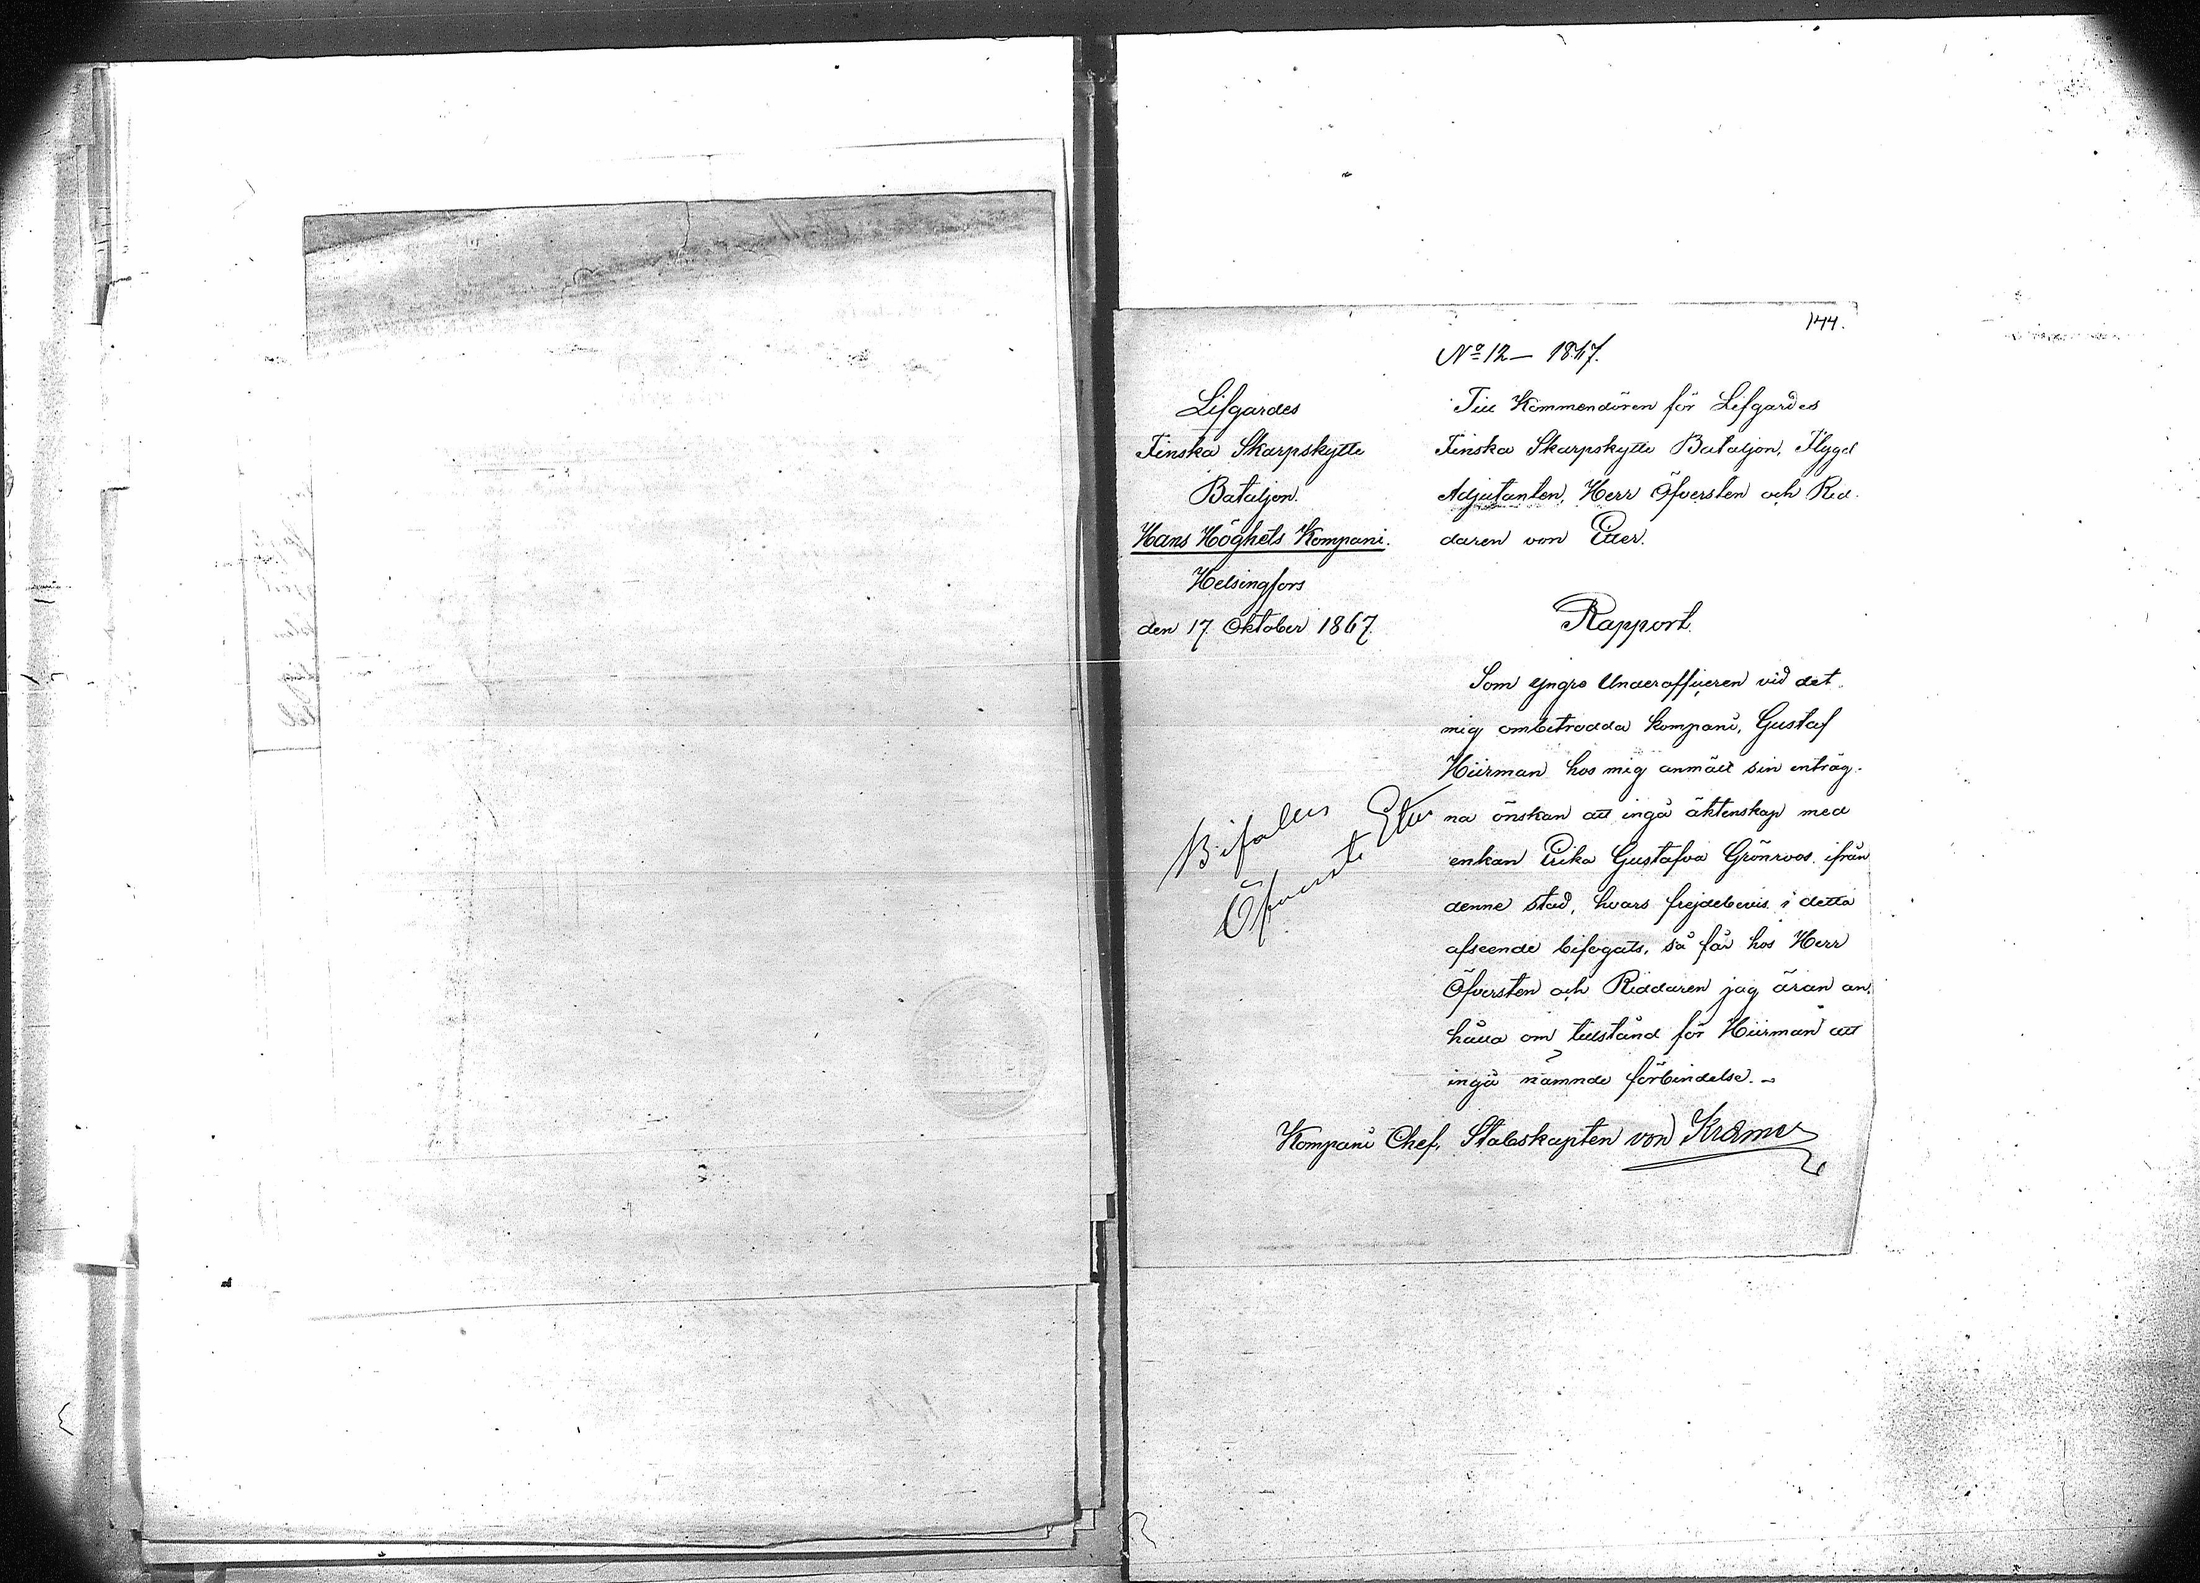 144.
Nº 12 — 1867.
Lifgardes
Finska Skarpskytte
Bataljon.
Hans Höghets Kompani.
Helsingfors
den 17 Oktober 1867.
Till Kommendören för Lifgardes
Finska Skarpskytte Bataljon, Flygel
Adjutanten, Herr Öfversten och Rid-
daren von Etter.
Rapport.
Som yngre Underofficeren vid det
mig ombetrodda kompani, Gustaf
Hiirman hos mig anmält sin enträg-
na önskan att ingå äktenskap med
enkan Erika Gustafva Grönroos ifrån
denne stad, hvars frejdebevis i detta
afseende bifogats, så får hos Herr
Öfversten och Riddaren jag äran an-
hålla om tillstånd för Hiirman att
ingå nämnde förbindelse.—
Kompani Chef, Stabskapten von Kræmer
Bifalles
Öfverste Etter